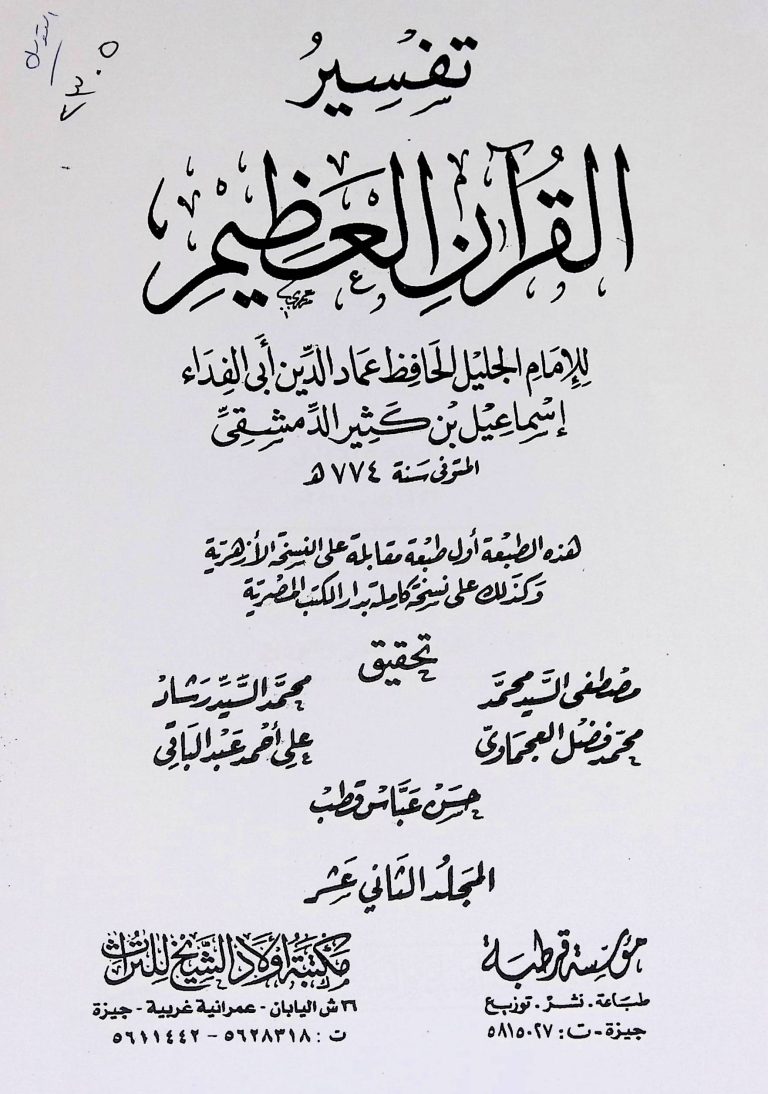 تفسير
القرآن العظيم
للإمام الجليل الحافظ عماد الدين أبى الفداء
إسماعيل بن كثير الدمشقى
المتوفى سنة ٧٧٤ هـ
هذه الطبعة أول طبعة مقابلة على النسخة الأزهرية
وكذلك على نسخة كاملة بدار الكتب المصرية
تحقيق
مصطفى السيد محمد
محمد السيد رشاد
محمد فضل العجماوى
على أحمد عبد الباقى
حسن عباس قطب
المجلد الثاني عشر
مؤسسة قرطبة
طباعة . نشر . توزيع
جيزة - ت : ٥٨١٥٠٢٧
مكتبة أولاد الشيخ للتراث
٣٦ ش اليابان - عمرانية غربية - جيزة
ت : ٥٦٢٨٣١٨ - ٥٦١١٤٤٢